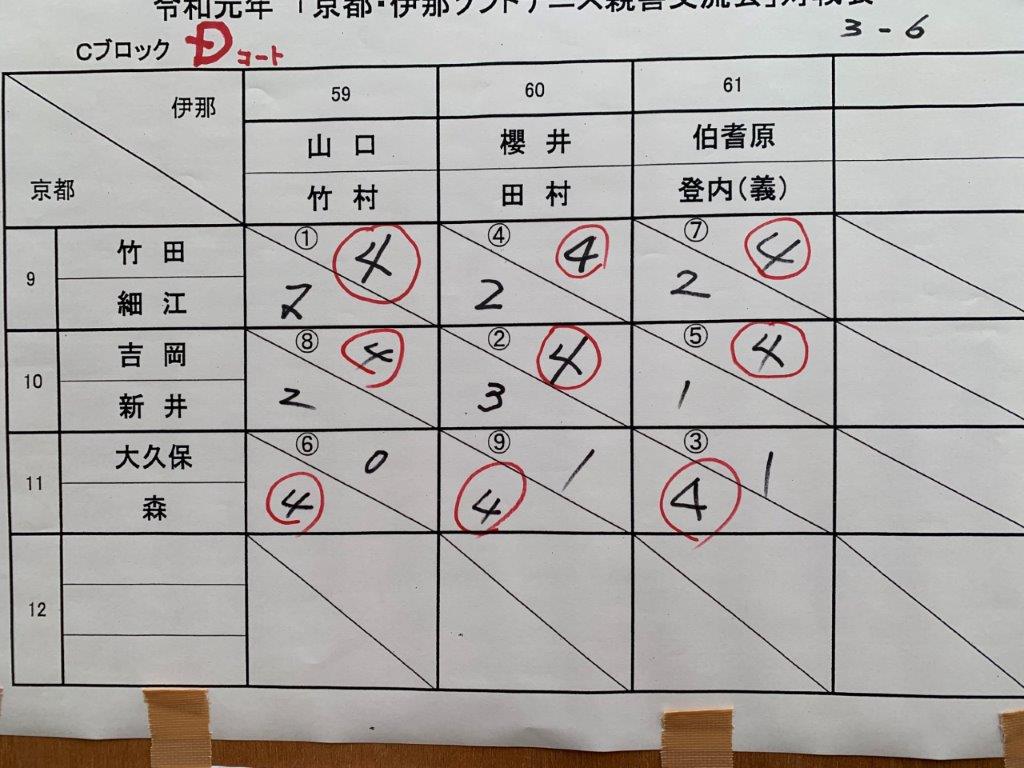 令和元年 「京都・伊那ソフトテニス親善交流会」対戦表
3 - 6
Cブロック Ðコート
伊那
京都
59 60 61
山 口 櫻 井 伯耆原
竹 村 田 村 登内(義)
9
竹 田
細 江
① 4 ④ 4 ⑦ 4
2 2 2
10
吉 岡
新 井
⑧ 4 ② 4 ⑤ 4
2 3 1
11
大久保
森
⑥ 0 ⑨ 1 ③ 1
4 4 4
12